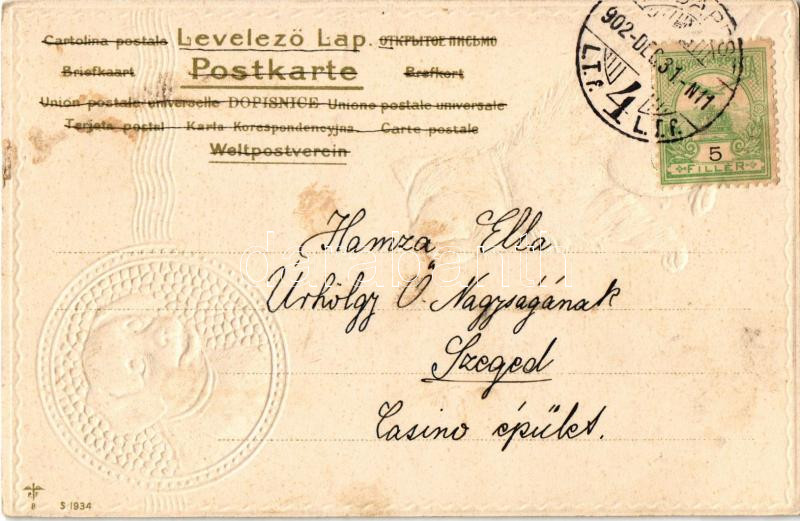 Cartolina postale Levelező Lap. ОТКРЫТОЕ ПИСЬМО
Briefkaart Postkarte Brefkort
Union postale universelle DOPISNICE Unione postale universale
Tarjeta postal Karta Korespondencyjna Carte postale
Weltpostverein
902-DEC.31.-N11
L.T.f. 4 L.T.f.
5
FILLÉR
Hamza Ella
Úrhölgy Ő Nagyságának
Szeged
Casino épület.
8 S 1934